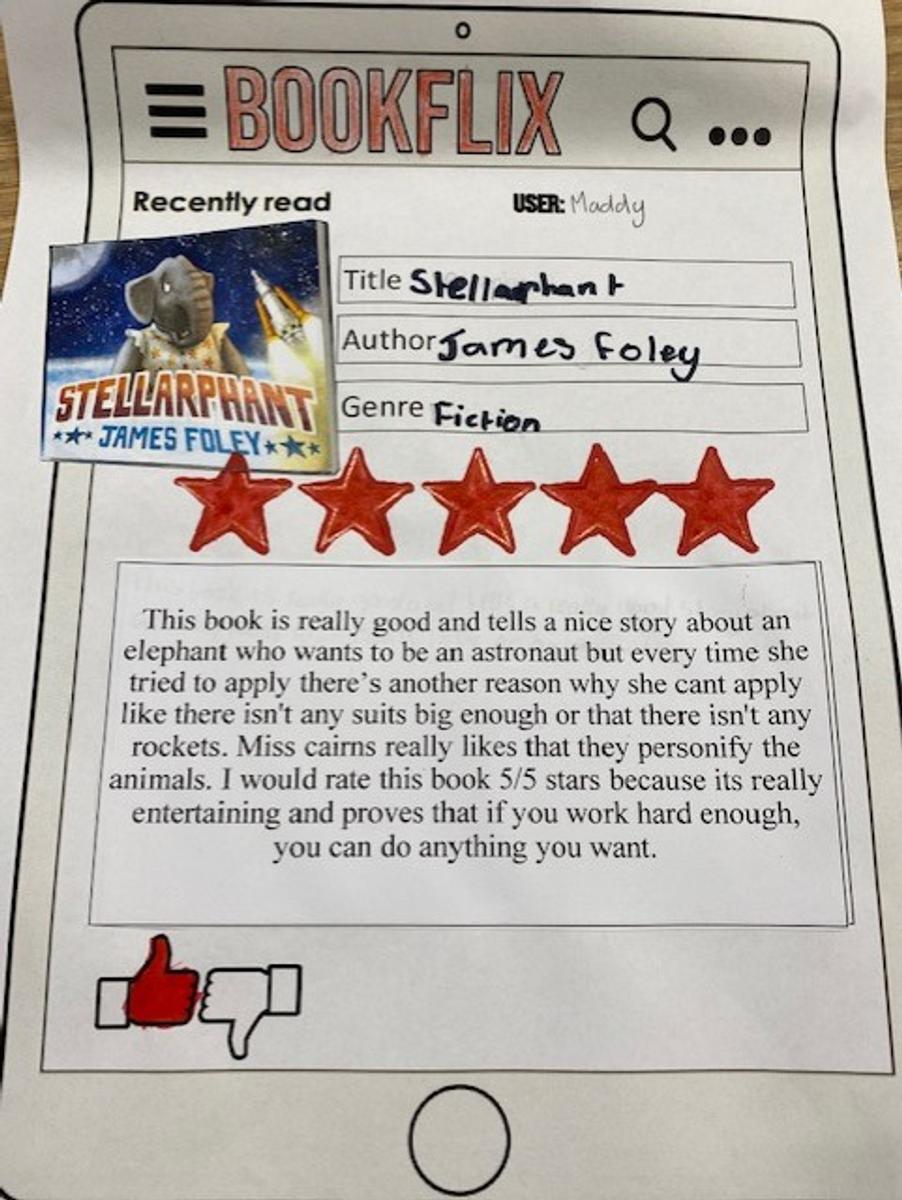 BOOKFLIX
Recently read
USER: Maddy
STELLARPHANT
JAMES FOLEY
Title Stellarphant
Author James Foley
Genre Fiction
This book is really good and tells a nice story about an
elephant who wants to be an astronaut but every time she
tried to apply there's another reason why she cant apply
like there isn't any suits big enough or that there isn't any
rockets. Miss cairns really likes that they personify the
animals. I would rate this book 5/5 stars because its really
entertaining and proves that if you work hard enough,
you can do anything you want.